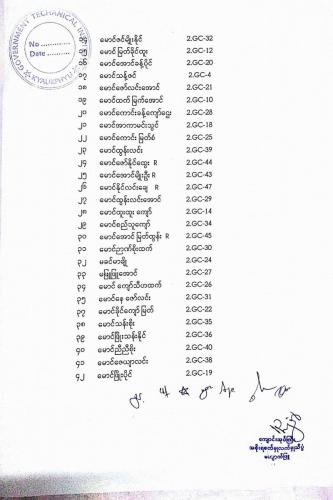 GOVERNMENT TECHANICAL IN
No
Date
KYAUKPHYU
မောင်ဇင်မျိုးနိုင် 2.GC-32
၁၅ မောင် မြတ်ခိုင်ထူး 2.GC-12
၁၆ မောင်အောင်ခန့်ပိုင် 2.GC-20
၁၇ မောင်သန့်ဇင် 2.GC-4
၁၈ မောင်ဇော်လင်းအောင် 2.GC-21
၁၉ မောင်ထက် မြက်အောင် 2.GC-10
၂၀ မောင်ကောင်းခန့်ကျော်ငွေး 2.GC-28
၂၁ မောင်အာကာမင်းသွင် 2.GC-18
၂၂ မောင်ကောင်း မြတ်စံ 2.GC-25
၂၃ မောင်ထွန်းလင်း 2.GC-39
၂၄ မောင်ဇော်နိုင်ထွေး R 2.GC-44
၂၅ မောင်အောင်မျိုးဦး R 2.GC-43
၂၆ မောင်နိုင်လင်းချေ R 2.GC-47
၂၇ မောင်ထွန်းလင်းအောင် 2.GC-29
၂၈ မောင်ထူးထူး ကျော် 2.GC-14
၂၉ မောင်စည်သူကျော် 2.GC-34
၃၀ မောင်အောင် မြတ်ထွန်း R 2.GC-45
၃၁ မောင်ဉာဏ်စိုးထက် 2.GC-30
၃၂ မခင်မာချို 2.GC-24
၃၃ မဖြူဖြူအောင် 2.GC-27
၃၄ မောင် ကျော်သီဟထက် 2.GC-26
၃၅ မောင်နေ ဇော်လင်း 2.GC-31
၃၇ မောင်ခိုင်ကျော် မြတ် 2.GC-22
၃၈ မောင်သန်းစိုး 2.GC-35
၃၉ မောင်ဖြိုးသန်းနိုင် 2.GC-36
၄၀ မောင်ညီညီစိုး 2.GC-40
၄၁ မောင်ဇေယျာလင်း 2.GC-38
၄၂ မောင်ဖြိုးပိုင် 2.GC-19
ကျောင်းအုပ်ကြီး
အစိုးရစက်မှုလက်မှုသိပ္ပံ
ကျောက်ဖြူ